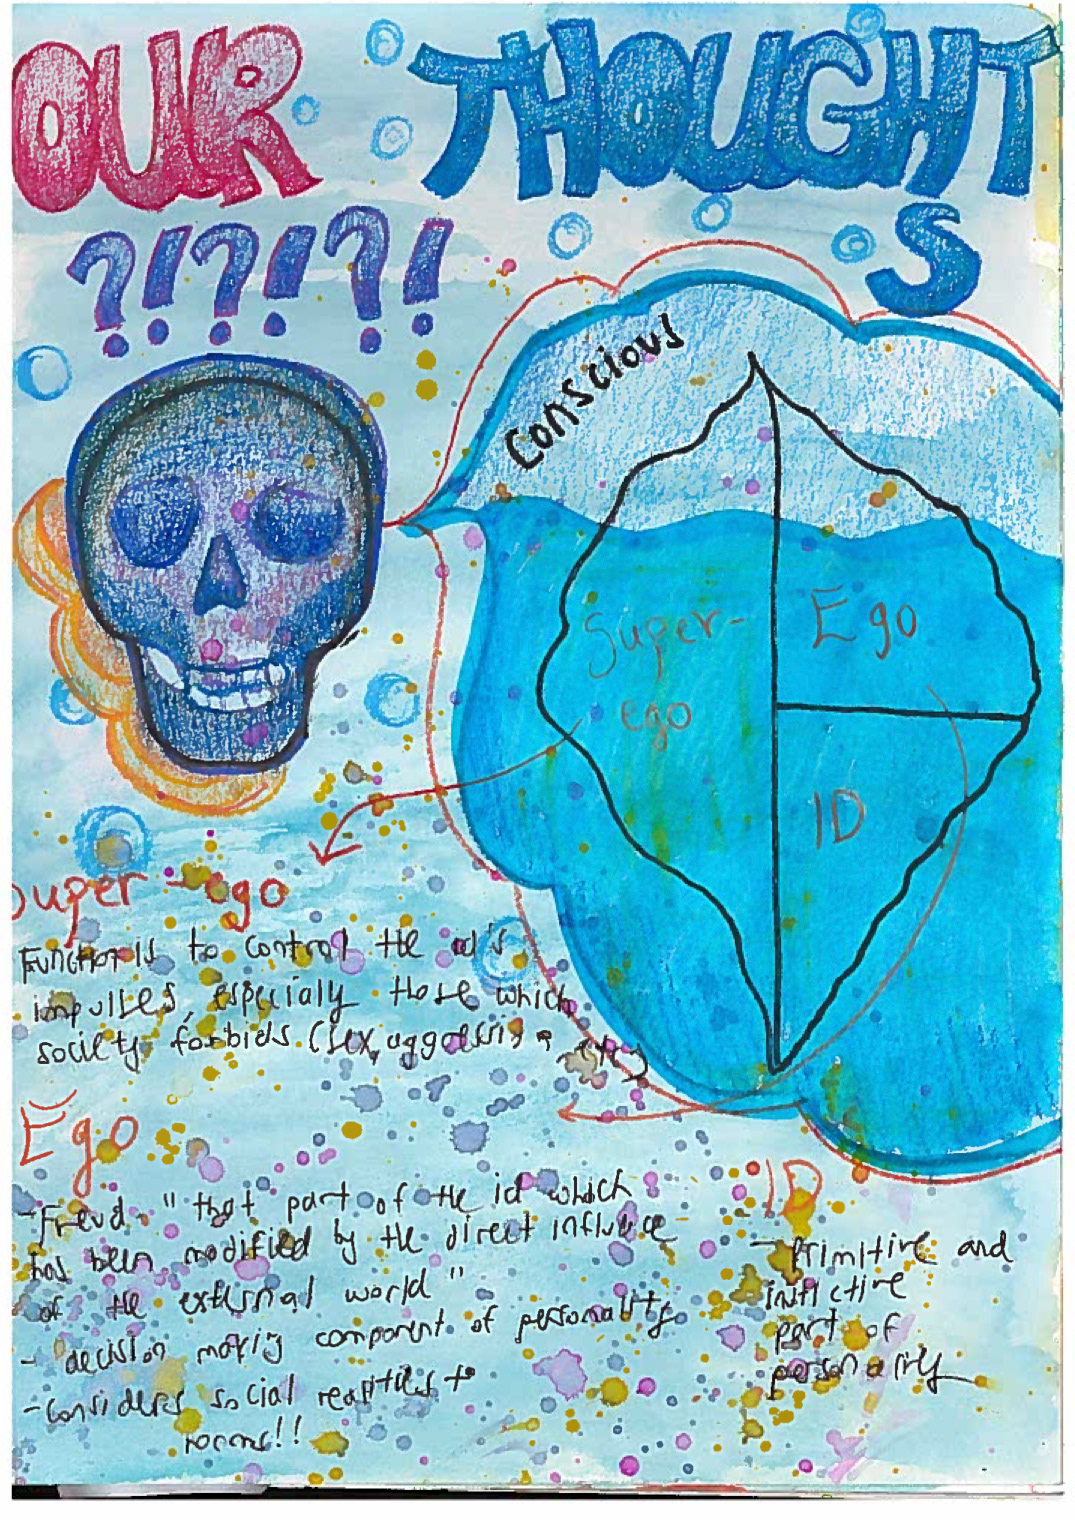 OUR THOUGHT
S
?!?!?!
Conscious
Super-
ego
Ego
ID
Super-ego
Function is to control the id's
impulses, especialy those which
society forbids (sex, aggression, etc)
Ego
- Freud "that part of the id which
has been modified by the direct influence
of the external world"
- decision making component of personality
- considers social realities +
norms!!
ID
- primitive and
part of
personality